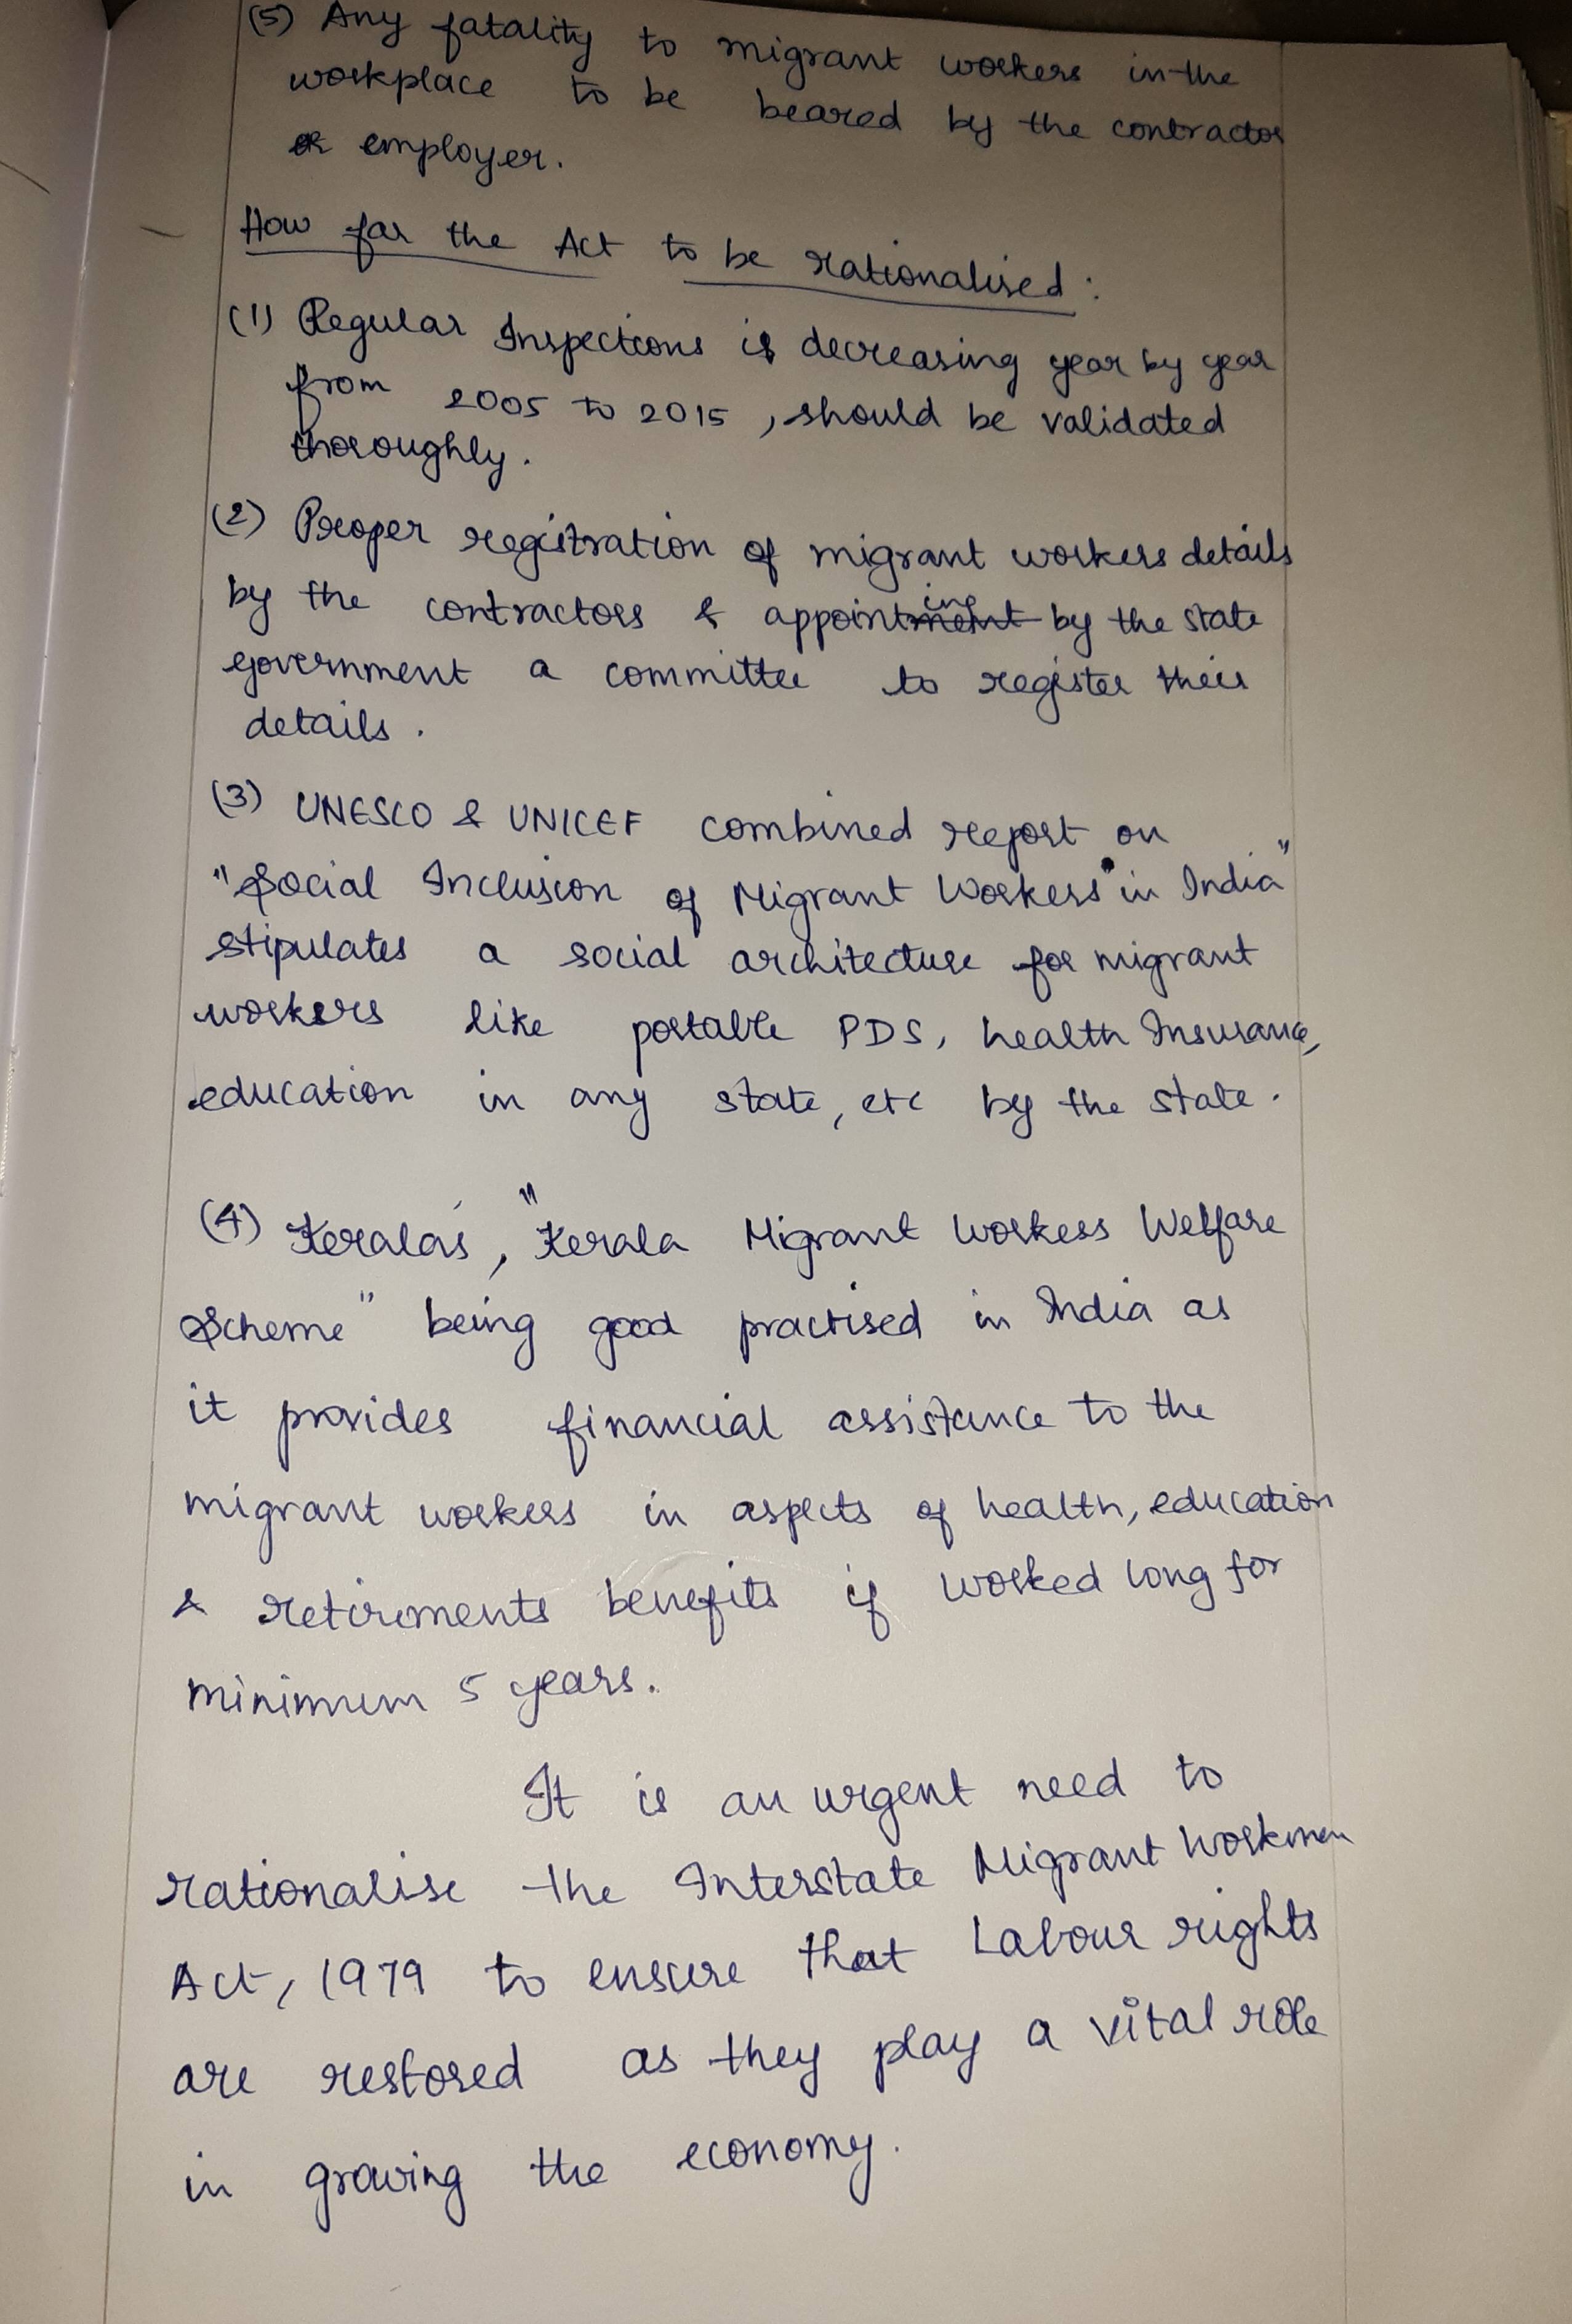 (5) Any fatality to migrant workers in the
workplace to be beared by the contractor
or employer.
How far the Act to be rationalised :
(1) Regular Inspections is decreasing year by year
from 2005 to 2015, should be validated
thoroughly.
(2) Proper registration of migrant workers details
by the contractors & appointing by the state
government a committee to register their
details.
(3) UNESCO & UNICEF combined report on
"Social Inclusion of Migrant Workers in India"
stipulates a social architecture for migrant
workers like portable PDS, health Insurance,
education in any state, etc by the state.
(4) Kerala's, "Kerala Migrant Workers Welfare
Scheme" being good practised in India as
it provides financial assistance to the
migrant workers in aspects of health, education
& retirements benefits if worked long for
minimum 5 years.
It is an urgent need to
rationalise the Interstate Migrant Workmen
Act, 1979 to ensure that Labour rights
are restored as they play a vital role
in growing the economy.